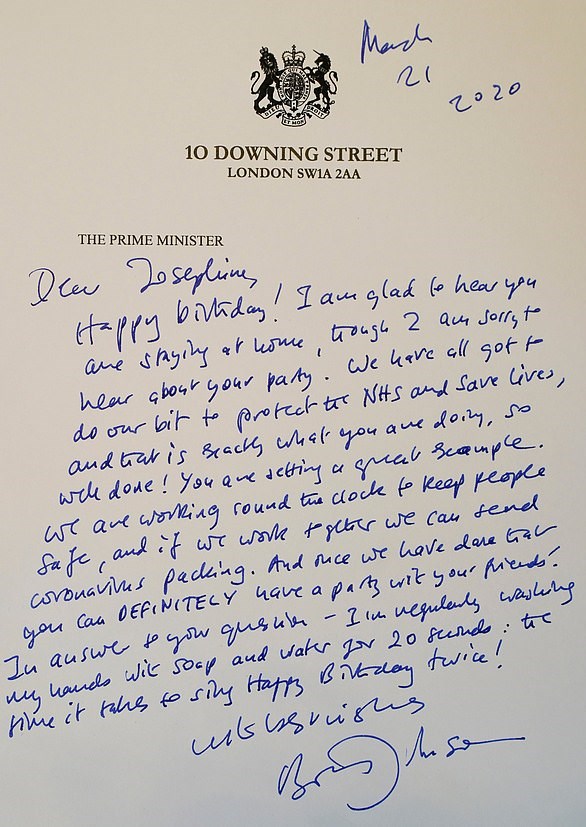 March
21
2020
10 DOWNING STREET
LONDON SW1A 2AA
THE PRIME MINISTER
Dear Josephine,
Happy birthday! I am glad to hear you
are staying at home, though I am sorry to
hear about your party. We have all got to
do our bit to protect the NHS and save lives,
and that is exactly what you are doing, so
well done! You are setting a great example.
We are working round the clock to keep people
safe, and if we work together we can send
coronavirus packing. And once we have done that
you can DEFINITELY have a party with your friends!
In answer to your question – I'm regularly washing
my hands with soap and water for 20 seconds: the
time it takes to sing Happy Birthday twice!
With best wishes
Boris Johnson